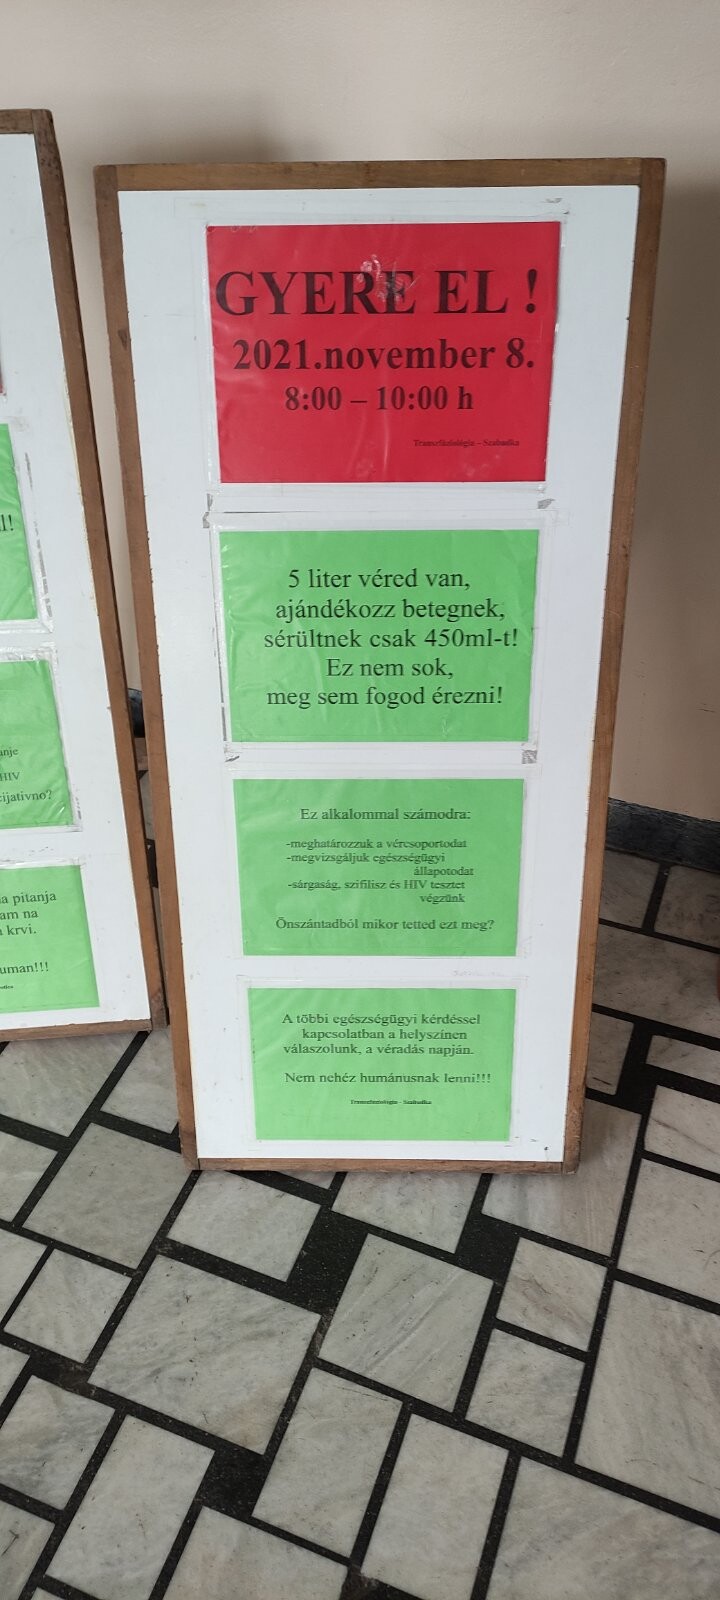 GYERE EL !
2021.november 8.
8:00 – 10:00 h
Transzfúziológia - Szabadka
5 liter véred van,
ajándékozz betegnek,
sérültnek csak 450ml-t!
Ez nem sok,
meg sem fogod érezni!
Ez alkalommal számodra:
-meghatározzuk a vércsoportodat
-megvizsgáljuk egészségügyi
állapotodat
-sárgaság, szifilisz és HIV tesztet
végzünk
Önszántadból mikor tetted ezt meg?
A többi egészségügyi kérdéssel
kapcsolatban a helyszínen
válaszolunk, a véradás napján.
Nem nehéz humánusnak lenni!!!
Transzfúziológia - Szabadka
HIV
pitanja
na
krvi.